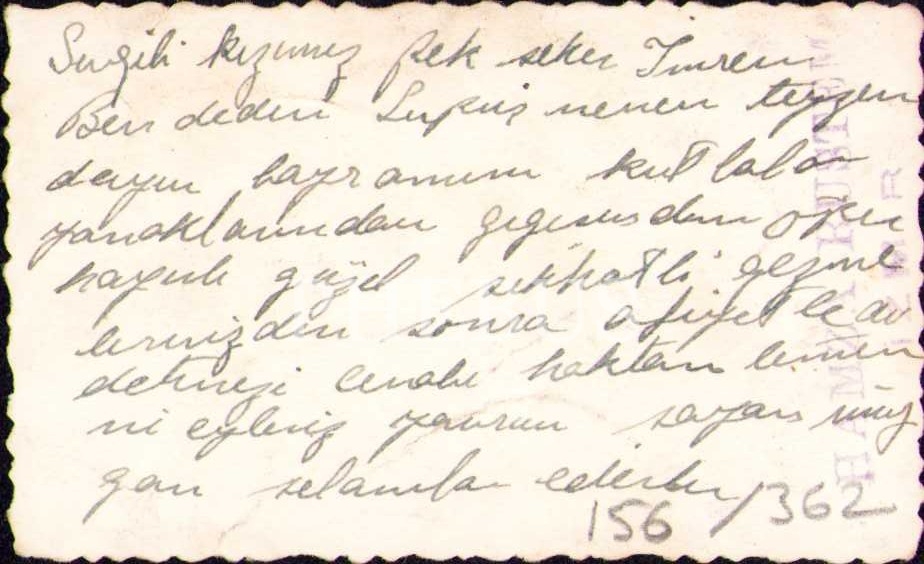 Sevgili kızımız pek şeker İmrem
Ben deden nenen teyzen
dayın bayramını kutlular
yanaklarından öper
hayırlı güzel sıhhatli gezme
lerinizden sonra afiyetle av
detinizi cenabı haktan temen
ni eyleriz yavrum
selamlar ederler
156 / 362
HAMZA RÜSTEM